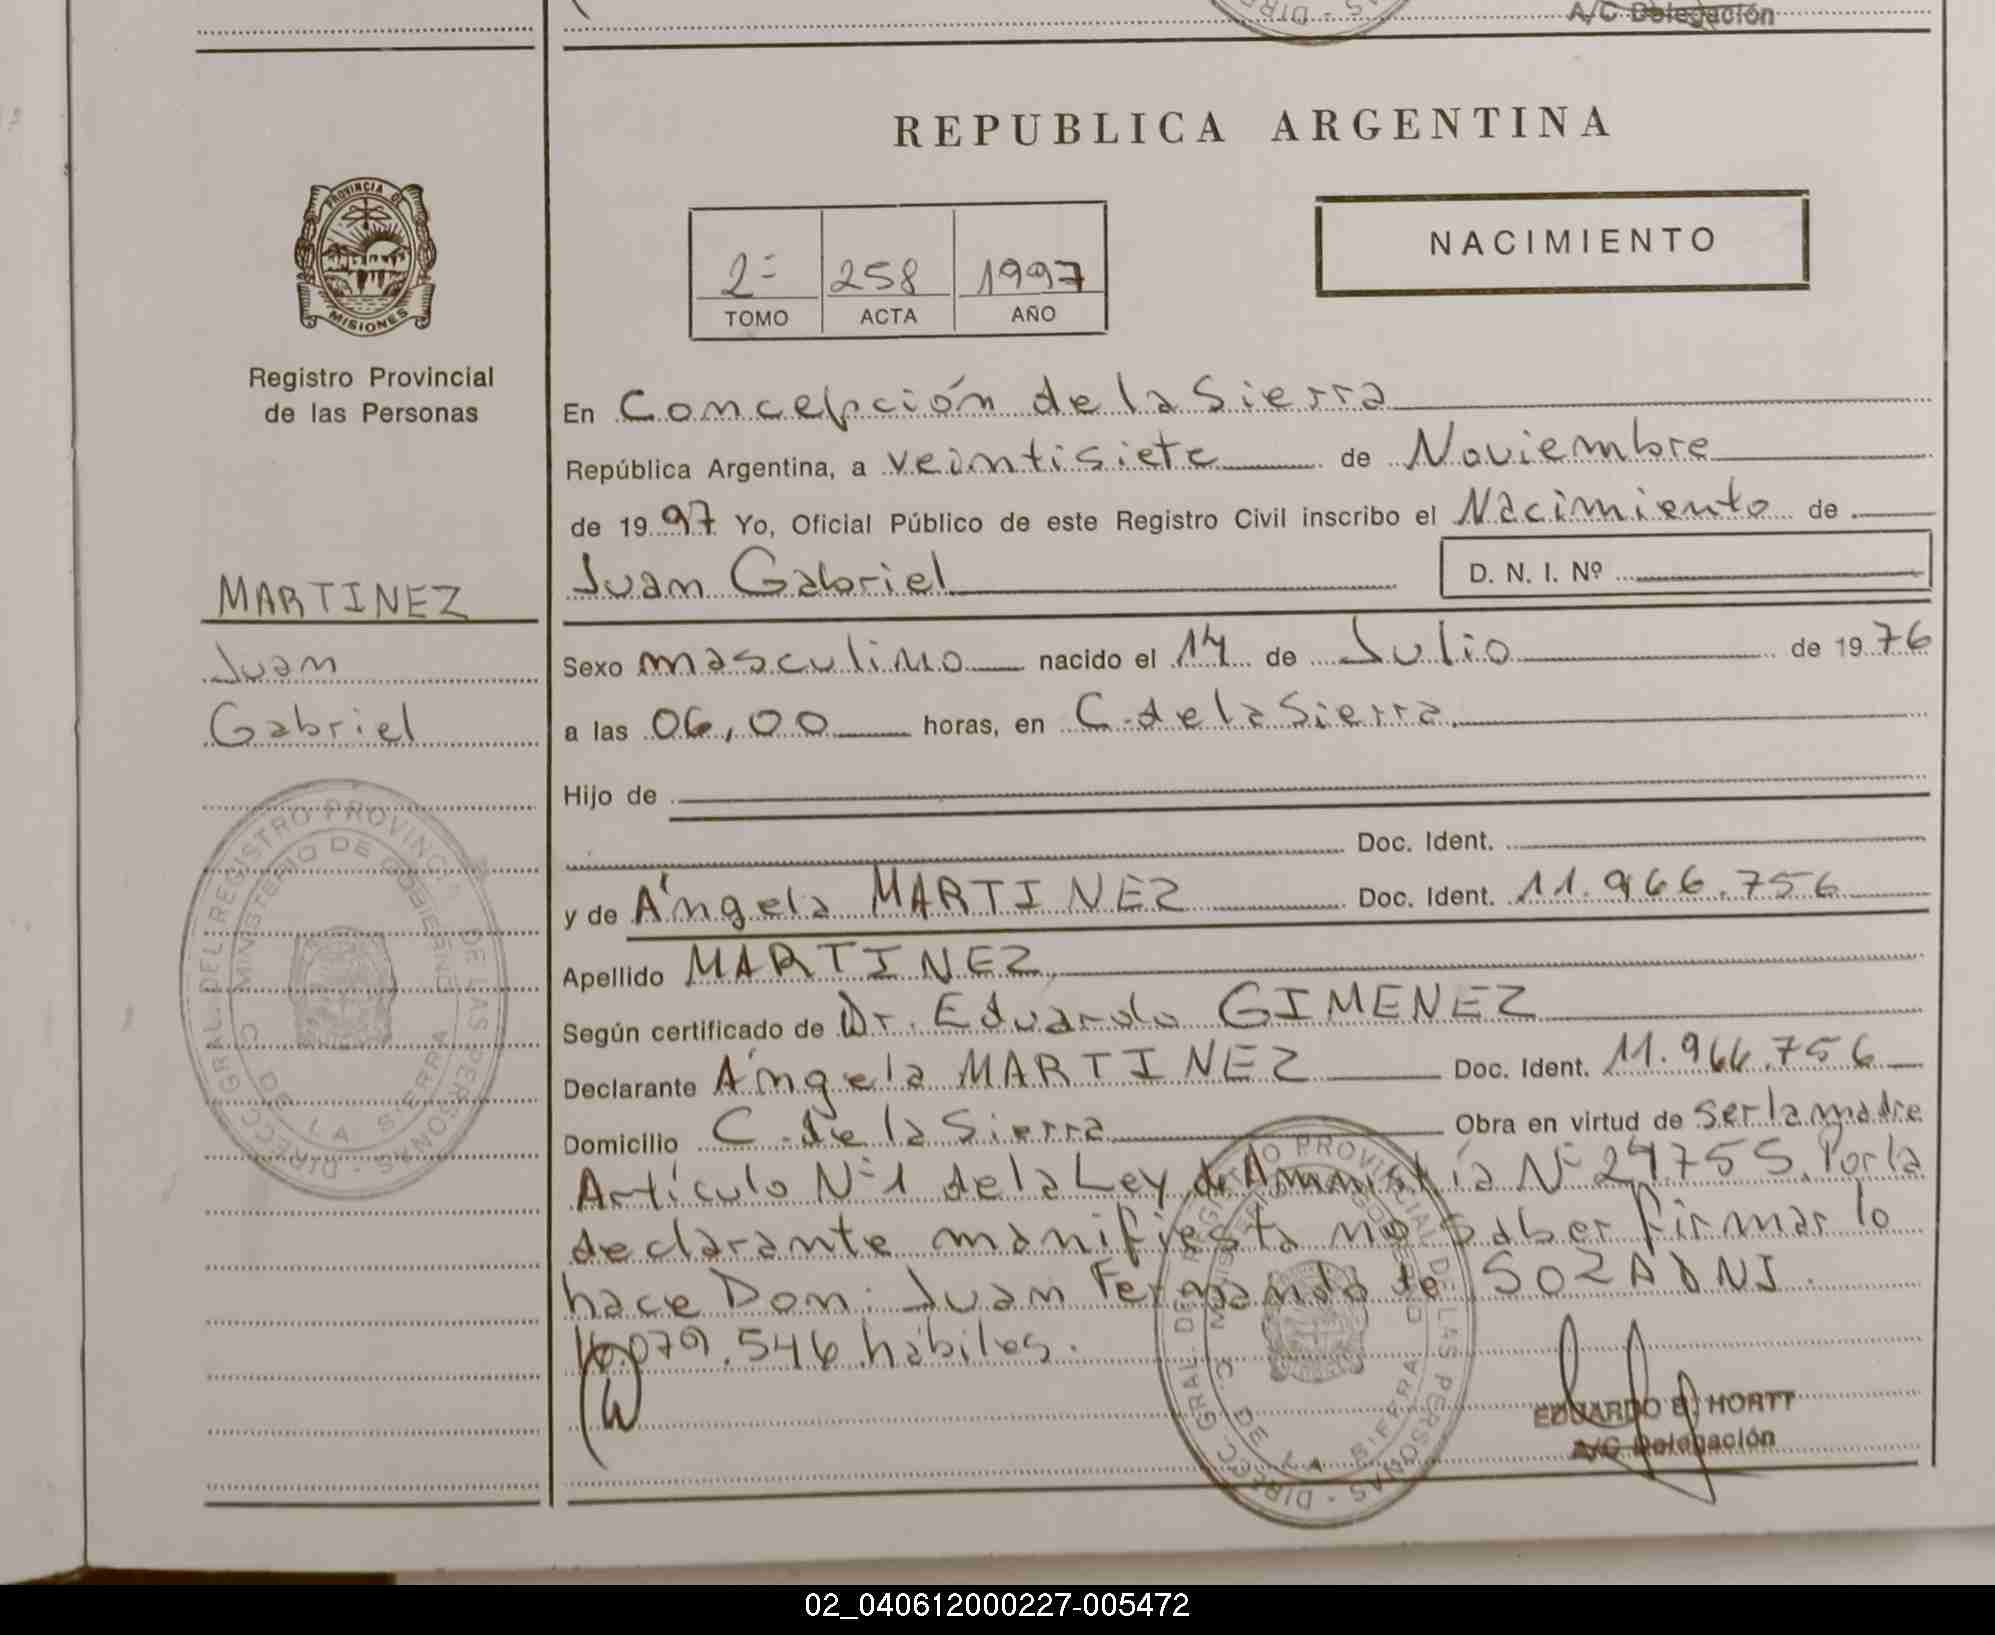 A/C Delegación
REPUBLICA ARGENTINA
PROVINCIA DE
MISIONES
Registro Provincial
de las Personas
2=
258
1997
TOMO
ACTA
AÑO
NACIMIENTO
En Concepción de la Sierra
República Argentina, a veintisiete de Noviembre
de 19 97 Yo, Oficial Público de este Registro Civil inscribo el Nacimiento de
Juan Gabriel D. N. I. Nº
MARTINEZ
Juan
Gabriel
Sexo masculino nacido el 14 de Julio de 19 76
a las 06,00 horas, en C. de la Sierra
Hijo de
Doc. Ident.
y de Ángela MARTINEZ Doc. Ident. 11.966.756
Apellido MARTINEZ
Según certificado de Dr. Eduardo GIMENEZ
Declarante Ángela MARTINEZ Doc. Ident. 11.966.756
Domicilio C. de la Sierra Obra en virtud de ser la madre
Artículo Nº1 de la Ley de Amnistía Nº 24755. Por la
declarante manifiesta no saber firmar lo
hace Don: Juan Fernando de SOZA DNI
16.079.546 hábiles.
DIRECC. GRAL. DEL REGISTRO PROVINCIAL DE LAS PERSONAS
MINISTERIO DE GOBIERNO
C. DE LA SIERRA
DIRECC. GRAL. DEL REGISTRO PROVINCIAL DE LAS PERSONAS
MINISTERIO DE GOBIERNO
C. DE LA SIERRA
EDUARDO B. HORTT
A/C Delegación
02_040612000227-005472